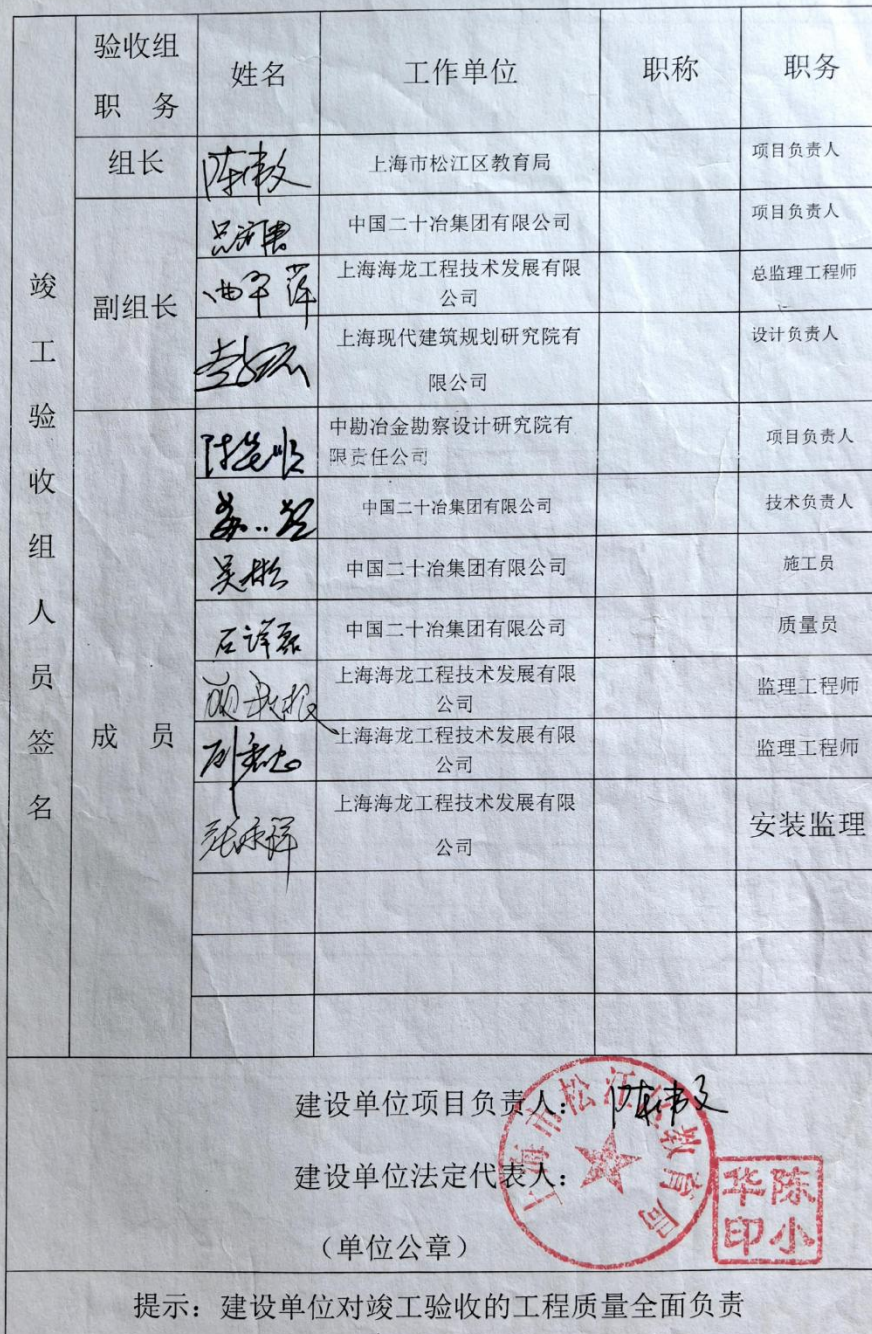 验收组
职 务
姓名
工作单位
职称
职务
竣工验收组人员签名
组长
陈伟文
上海市松江区教育局
项目负责人
副组长
中国二十冶集团有限公司
项目负责人
上海海龙工程技术发展有限
公司
总监理工程师
上海现代建筑规划研究院有
限公司
设计负责人
成 员
中勘冶金勘察设计研究院有
限责任公司
项目负责人
中国二十冶集团有限公司
技术负责人
吴彬
中国二十冶集团有限公司
施工员
石祥磊
中国二十冶集团有限公司
质量员
上海海龙工程技术发展有限
公司
监理工程师
上海海龙工程技术发展有限
公司
监理工程师
张永祥
上海海龙工程技术发展有限
公司
安装监理
建设单位项目负责人：陈伟文
建设单位法定代表人：
（单位公章）
上海市松江区教育局
陈小华印
提示：建设单位对竣工验收的工程质量全面负责